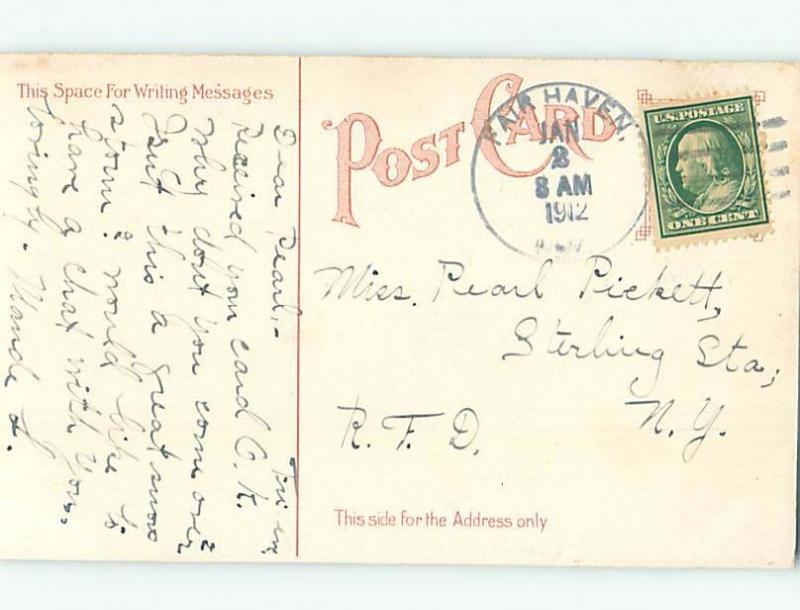 This Space For Writing Messages
Dear Pearl,- Fri eve,
Received your card O.K.
Why don't you come over?
Isn't this a great snow
storm? Would like to
have a chat with you.
Lovingly. Maude L.
POST CARD
FAIR HAVEN,
JAN
2
8 AM
1912
N.Y.
U.S. POSTAGE
ONE CENT
Miss. Pearl Pickett,
Sterling Sta,
R.F.D. N.Y.
This side for the Address only